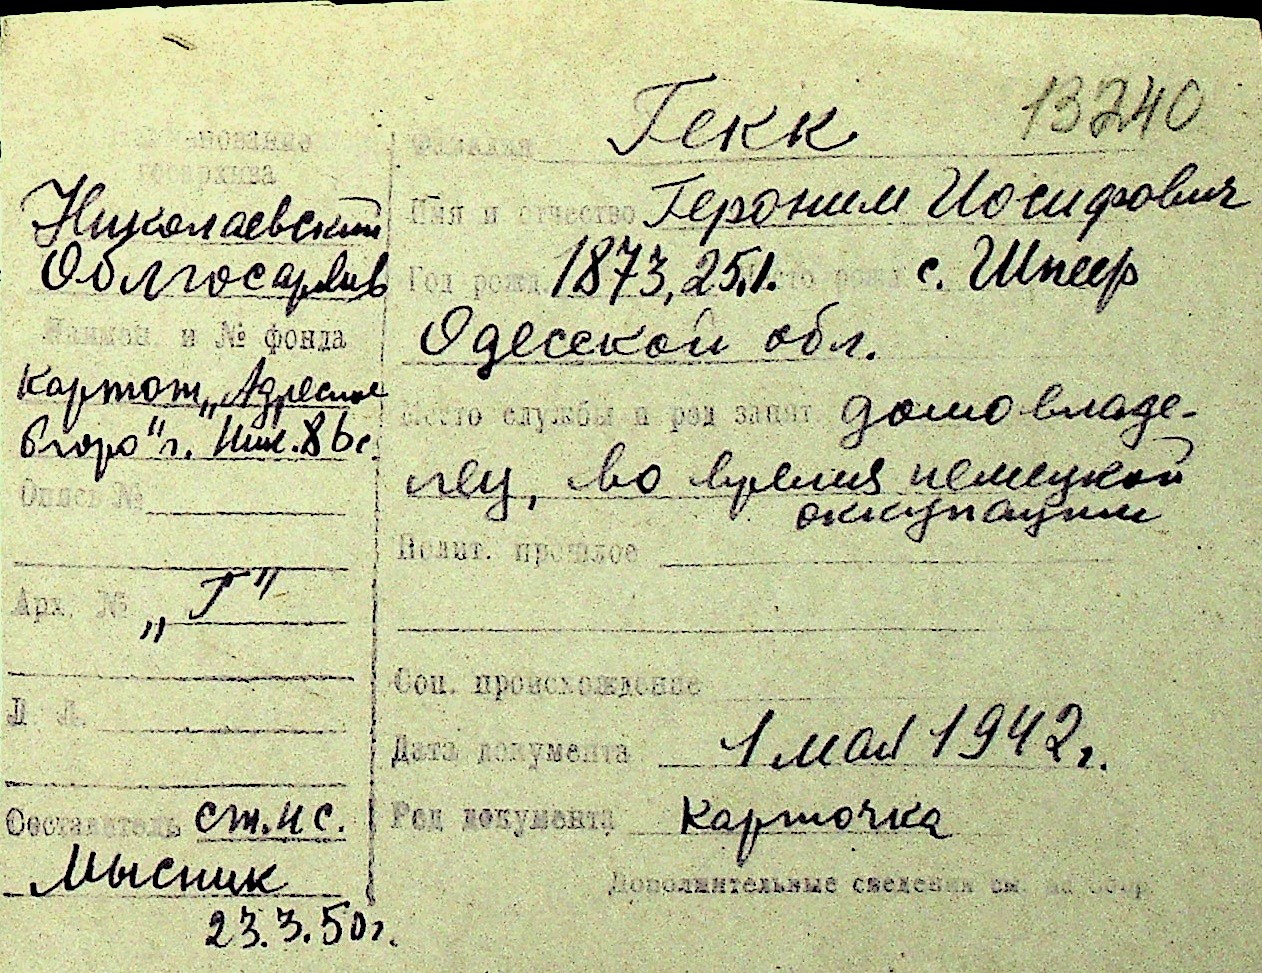 13240
Фамилия Гекк
Имя и отчество Героним Иосифович
Год рожд. 1873, 25.1. Место рожд. с. Шпеер
Одесской обл.
Место службы и род занят. домовладе-
лец, во время немецкой
оккупации
Полит. прошлое
Соц. происхождение
Дата документа 1 мая 1942 г.
Род документа карточка
Дополнительные сведения см. на обор.
Наименование
госархива
Николаевский
Облгосархив
Наимен. и № фонда
картот. „Адресное
бюро" г. Ник.
Опись №
Арх. № „Г"
Л. Л.
Составитель ст. н с.
Мысник
23.3.50 г.